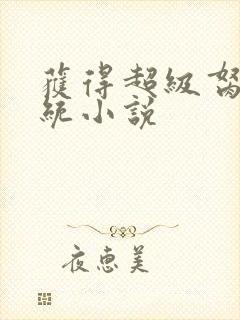 獲得超級努
統小說
夜惠美